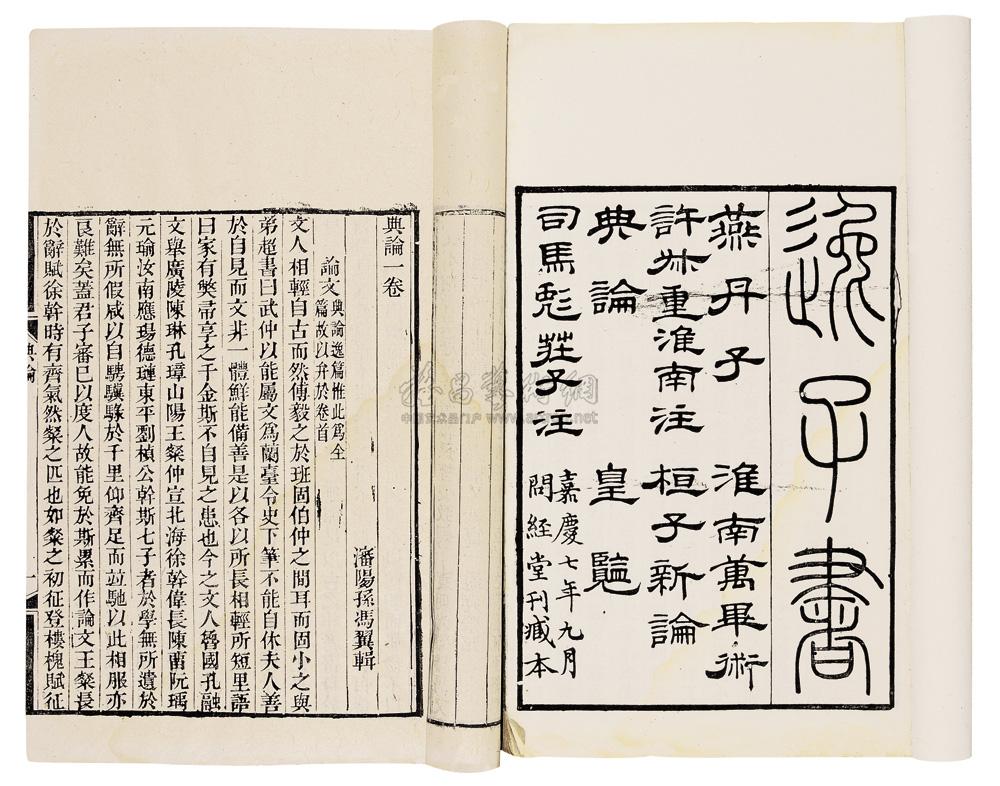 逸子書
燕丹子　淮南萬畢術
許叔重淮南注　桓子新論
典論　皇覽
司馬彪莊子注
嘉慶七年九月
問經堂刊藏本
典論一卷
瀋陽孫馮翼輯
論文
典論逸篇惟此爲全
篇故以弁於卷首
文人相輕自古而然傅毅之於班固伯仲之閒耳而固小之與
弟超書曰武仲以能屬文爲蘭臺令史下筆不能自休夫人善
於自見而文非一體鮮能備善是以各以所長相輕所短里語
曰家有獘帚享之千金斯不自見之患也今之文人魯國孔融
文舉廣陵陳琳孔璋山陽王粲仲宣北海徐幹偉長陳畱阮瑀
元瑜汝南應瑒德璉東平劉楨公幹斯七子者於學無所遺於
辭無所假咸以自騁驥騄於千里仰齊足而竝馳以此相服亦
良難矣蓋君子審己以度人故能免於斯累而作論文王粲長
於辭賦徐幹時有齊氣然粲之匹也如粲之初征登樓槐賦征
典論
一